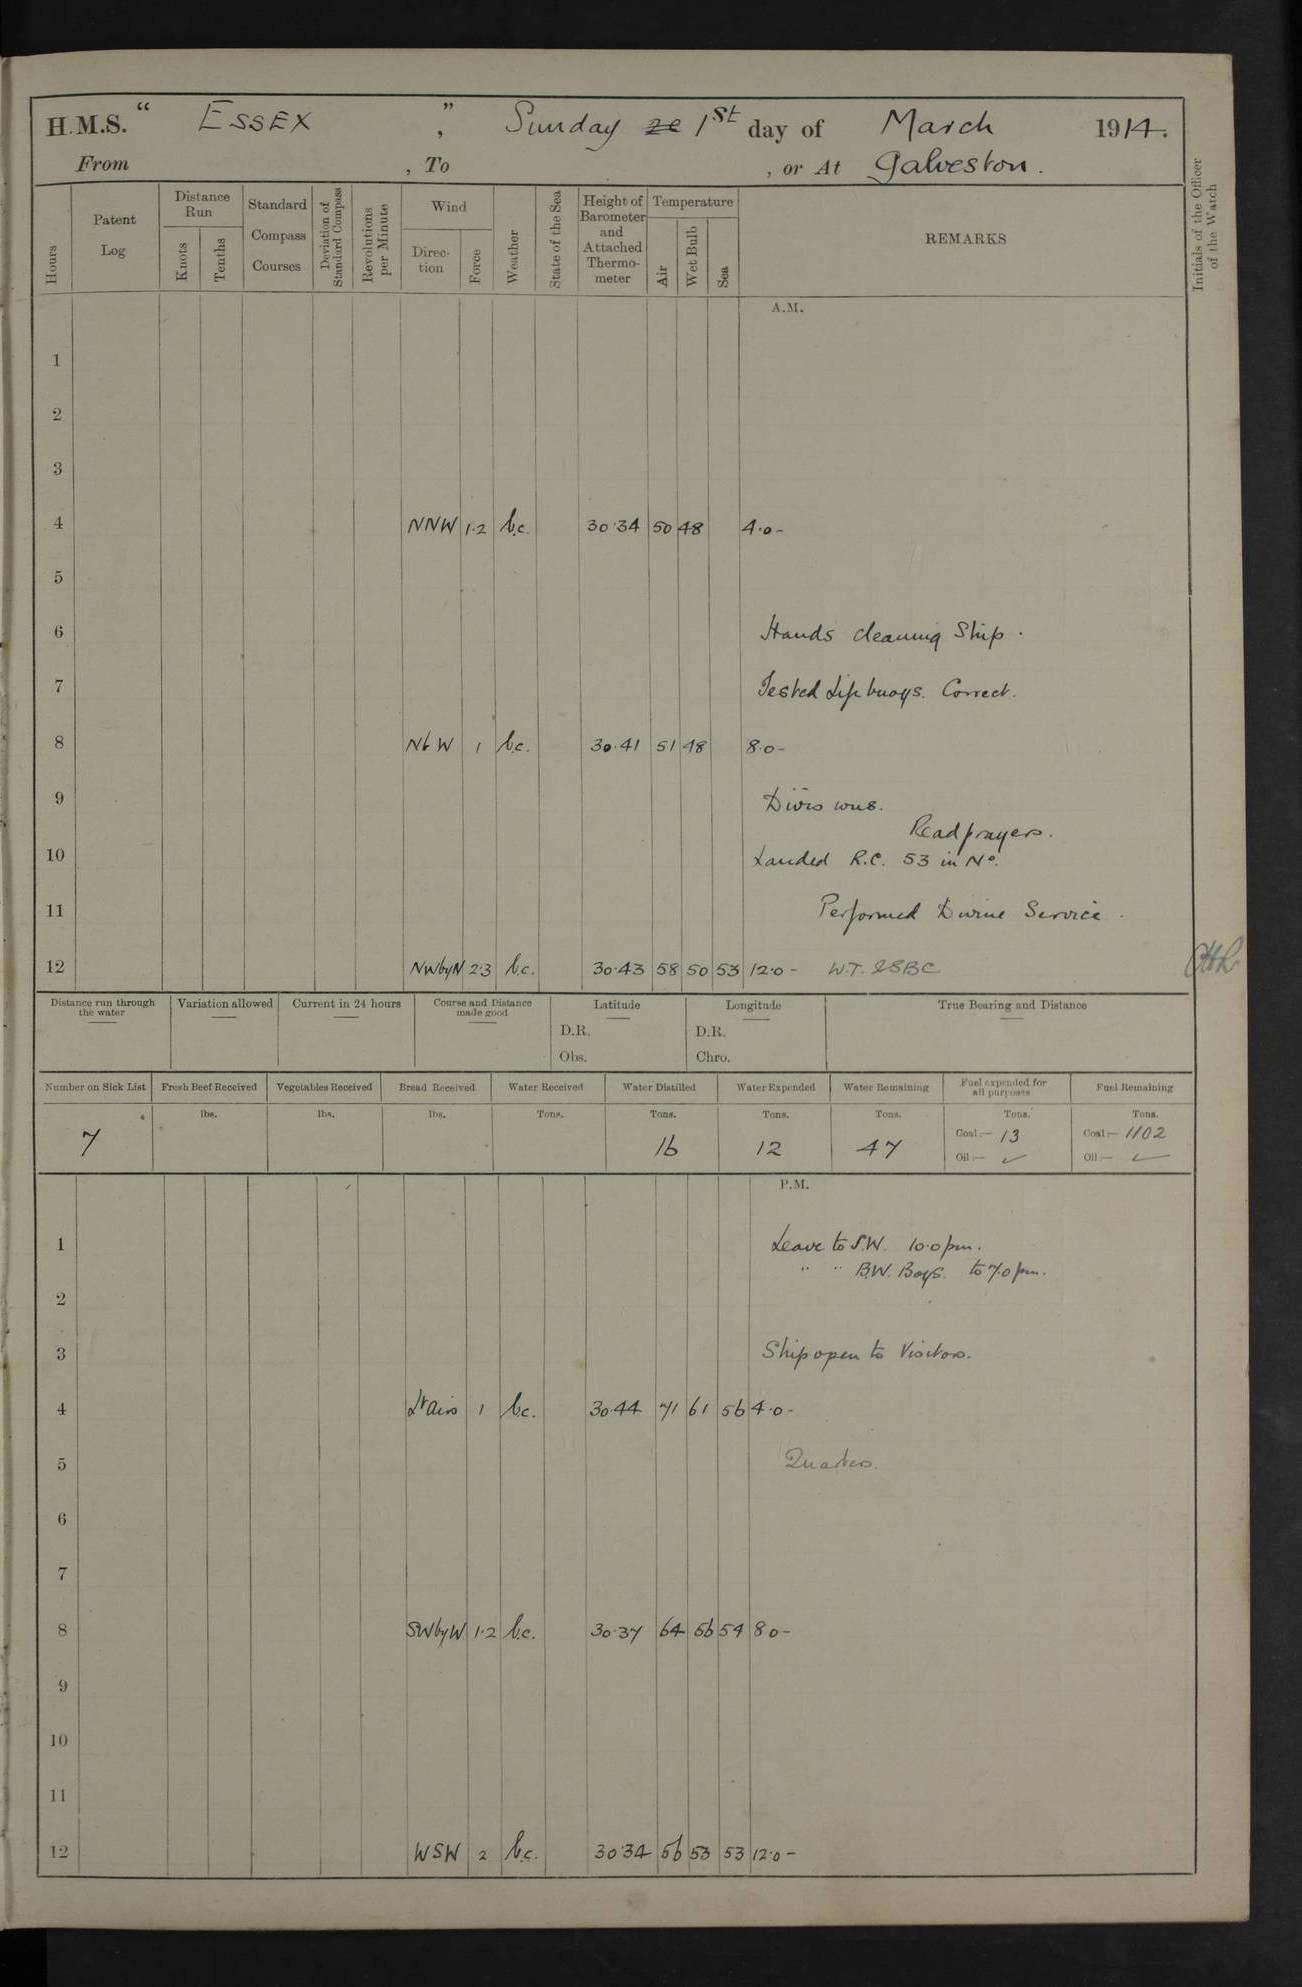 H.M.S. " ESSEX ", Sunday 1st day of March 1914.
From , To , or At Galveston.
Hours
Patent Log
Distance Run
Knots
Tenths
Standard Compass Courses
Deviation of Standard Compass
Revolutions per Minute
Wind
Direction
Force
Weather
State of the Sea
Height of Barometer and Attached Thermometer
Temperature
Air
Wet Bulb
Sea
REMARKS
Initials of the Officer of the Watch
A.M.
1
2
3
4 NNW 1.2 b.c. 30.34 50 48 4.0-
5
6 Hands cleaning Ship.
7 Tested Lifebuoys. Correct.
8 NbW 1 b.c. 30.41 51 48 8.0-
9 Divisions.
Read prayers.
10 Landed R.C. 53 in No.
11 Performed Divine Service.
12 NWbyN 2.3 b.c. 30.43 58 50 53 12.0 - W.T. & S.B.C.
Distance run through the water
Variation allowed
Current in 24 hours
Course and Distance made good
Latitude
D.R.
Obs.
Longitude
D.R.
Chro.
True Bearing and Distance
Number on Sick List Fresh Beef Received Vegetables Received Bread Received Water Received Water Distilled Water Expended Water Remaining Fuel expended for all purposes Fuel Remaining
lbs. lbs. lbs. Tons. Tons. Tons. Tons. Tons. Tons.
7 16 12 47 Coal:— 13 Coal:— 1102
Oil:— ✓ Oil:— ✓
P.M.
1 Leave to S.W. 10.0 pm.
" " B.W. Boys. to 7.0 pm.
2
3 Ship open to Visitors.
4 Lt Airs 1 b.c. 30.44 71 61 56 4.0-
5 Quarters.
6
7
8 SWbyW 1.2 b.c. 30.37 64 56 54 8.0-
9
10
11
12 WSW 2 b.c. 30.34 56 53 53 12.0-